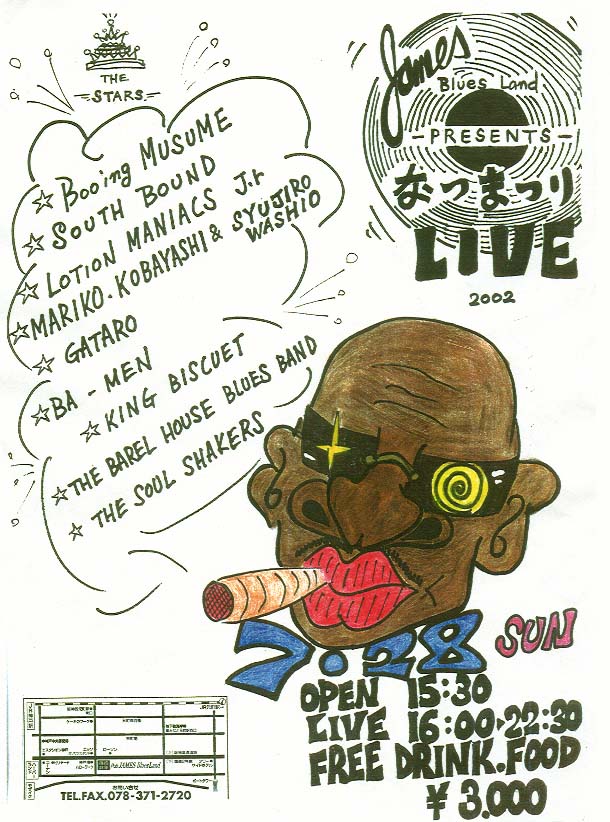 THE
STARS
James
Blues Land
PRESENTS
なつまつり
LIVE
2002
☆ Boo'ing MUSUME
☆ SOUTH BOUND
☆ LOTION MANIACS J.r
☆ MARIKO.KOBAYASHI & SYUJIRO WASHIO
☆ GATARO
☆ BA-MEN
☆ KING BISCUET
☆ THE BAREL HOUSE BLUES BAND
☆ THE SOUL SHAKERS
7.28 SUN
OPEN 15:30
LIVE 16:00▸22:30
FREE DRINK.FOOD
¥3.000
Pub JAMES BluesLand
お問い合せ
TEL.FAX.078-371-2720